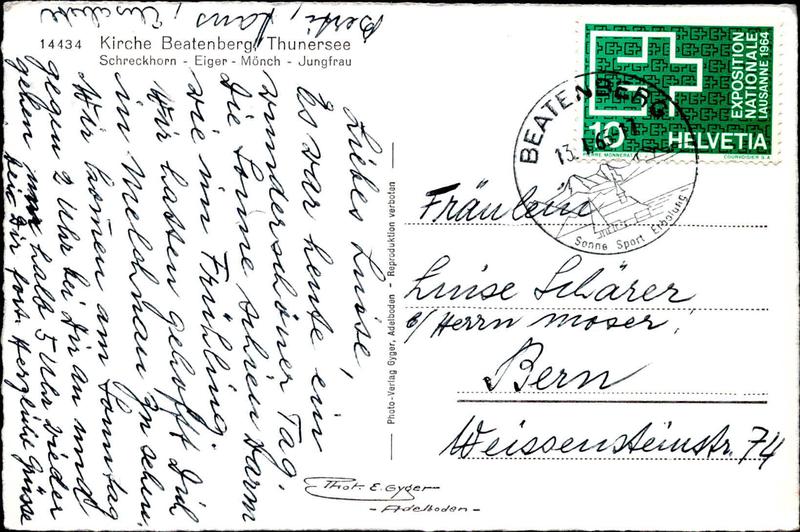 14434 Kirche Beatenberg, Thunersee
Schreckhorn - Eiger - Mönch - Jungfrau
Liebes Luise,
Es war heute ein
wunderschöner Tag.
Die Sonne schien warm
wie im Frühling.
Wir hatten gehofft Dich
in zu sehen.
Wir kommen am Sonntag
gegen 2 Uhr bei Dir an und
gehen halb 5 Uhr wieder
bei Dir fort. Herzliche Grüsse
Berti, Hans,
Photo-Verlag Gyger, Adelboden - Reproduktion verboten
Phot. E. Gyger
- Adelboden -
EXPOSITION
NATIONALE
LAUSANNE 1964
10 HELVETIA
PIERRE MONNERAT COURVOISIER S.A.
BEATENBERG
Sonne Sport Erholung
Fräulein
Luise Schärer
c/ Herrn Moser,
Bern
Weissensteinstr. 74